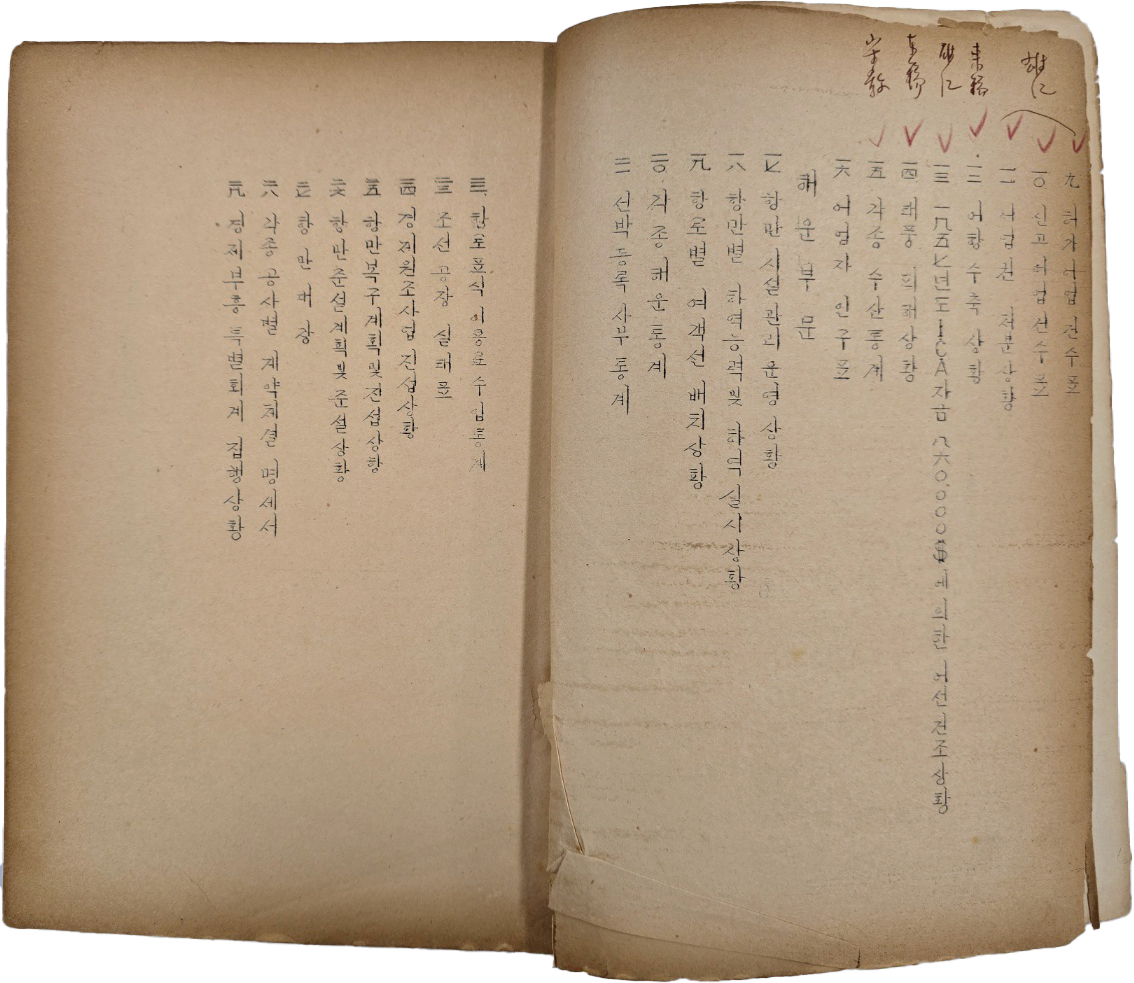 九 허가어업 건수표
一〇 신고어업선수표
一一 어업권 처분상황
一二 어황수축 상황
一三 一九五七년도 ICA자금 八六〇.〇〇〇$에 의한 어선건조상황
一四 태풍 피해상황
一五 각종 수산통계
一六 어업자 인구표
해운부문
一七 항만시설관리운영상황
一八 항만별 하역능력및 하역실시상황
一九 항로별 여객선 배치상황
二〇 각종해운통계
二一 선박등록사무통계
二二 항로표식 이용료수입통계
二三 조선공장 실태표
二四 경제원조사업 진섭상황
二五 항만복구계획및진섭상황
二六 항만준설계획및준설상황
二七 항만대장
二八 각종공사별 계약체결 명세서
二九 경제부흥 특별회계 집행상황